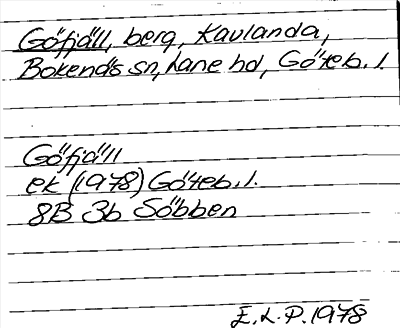 Göfjäll, berg, Kavlanda,
Bokenäs sn, Lane hd, Göteb. l.
Göfjäll
ek (1978) Göteb. l.
8B 3b Söbben
E. L. P. 1978